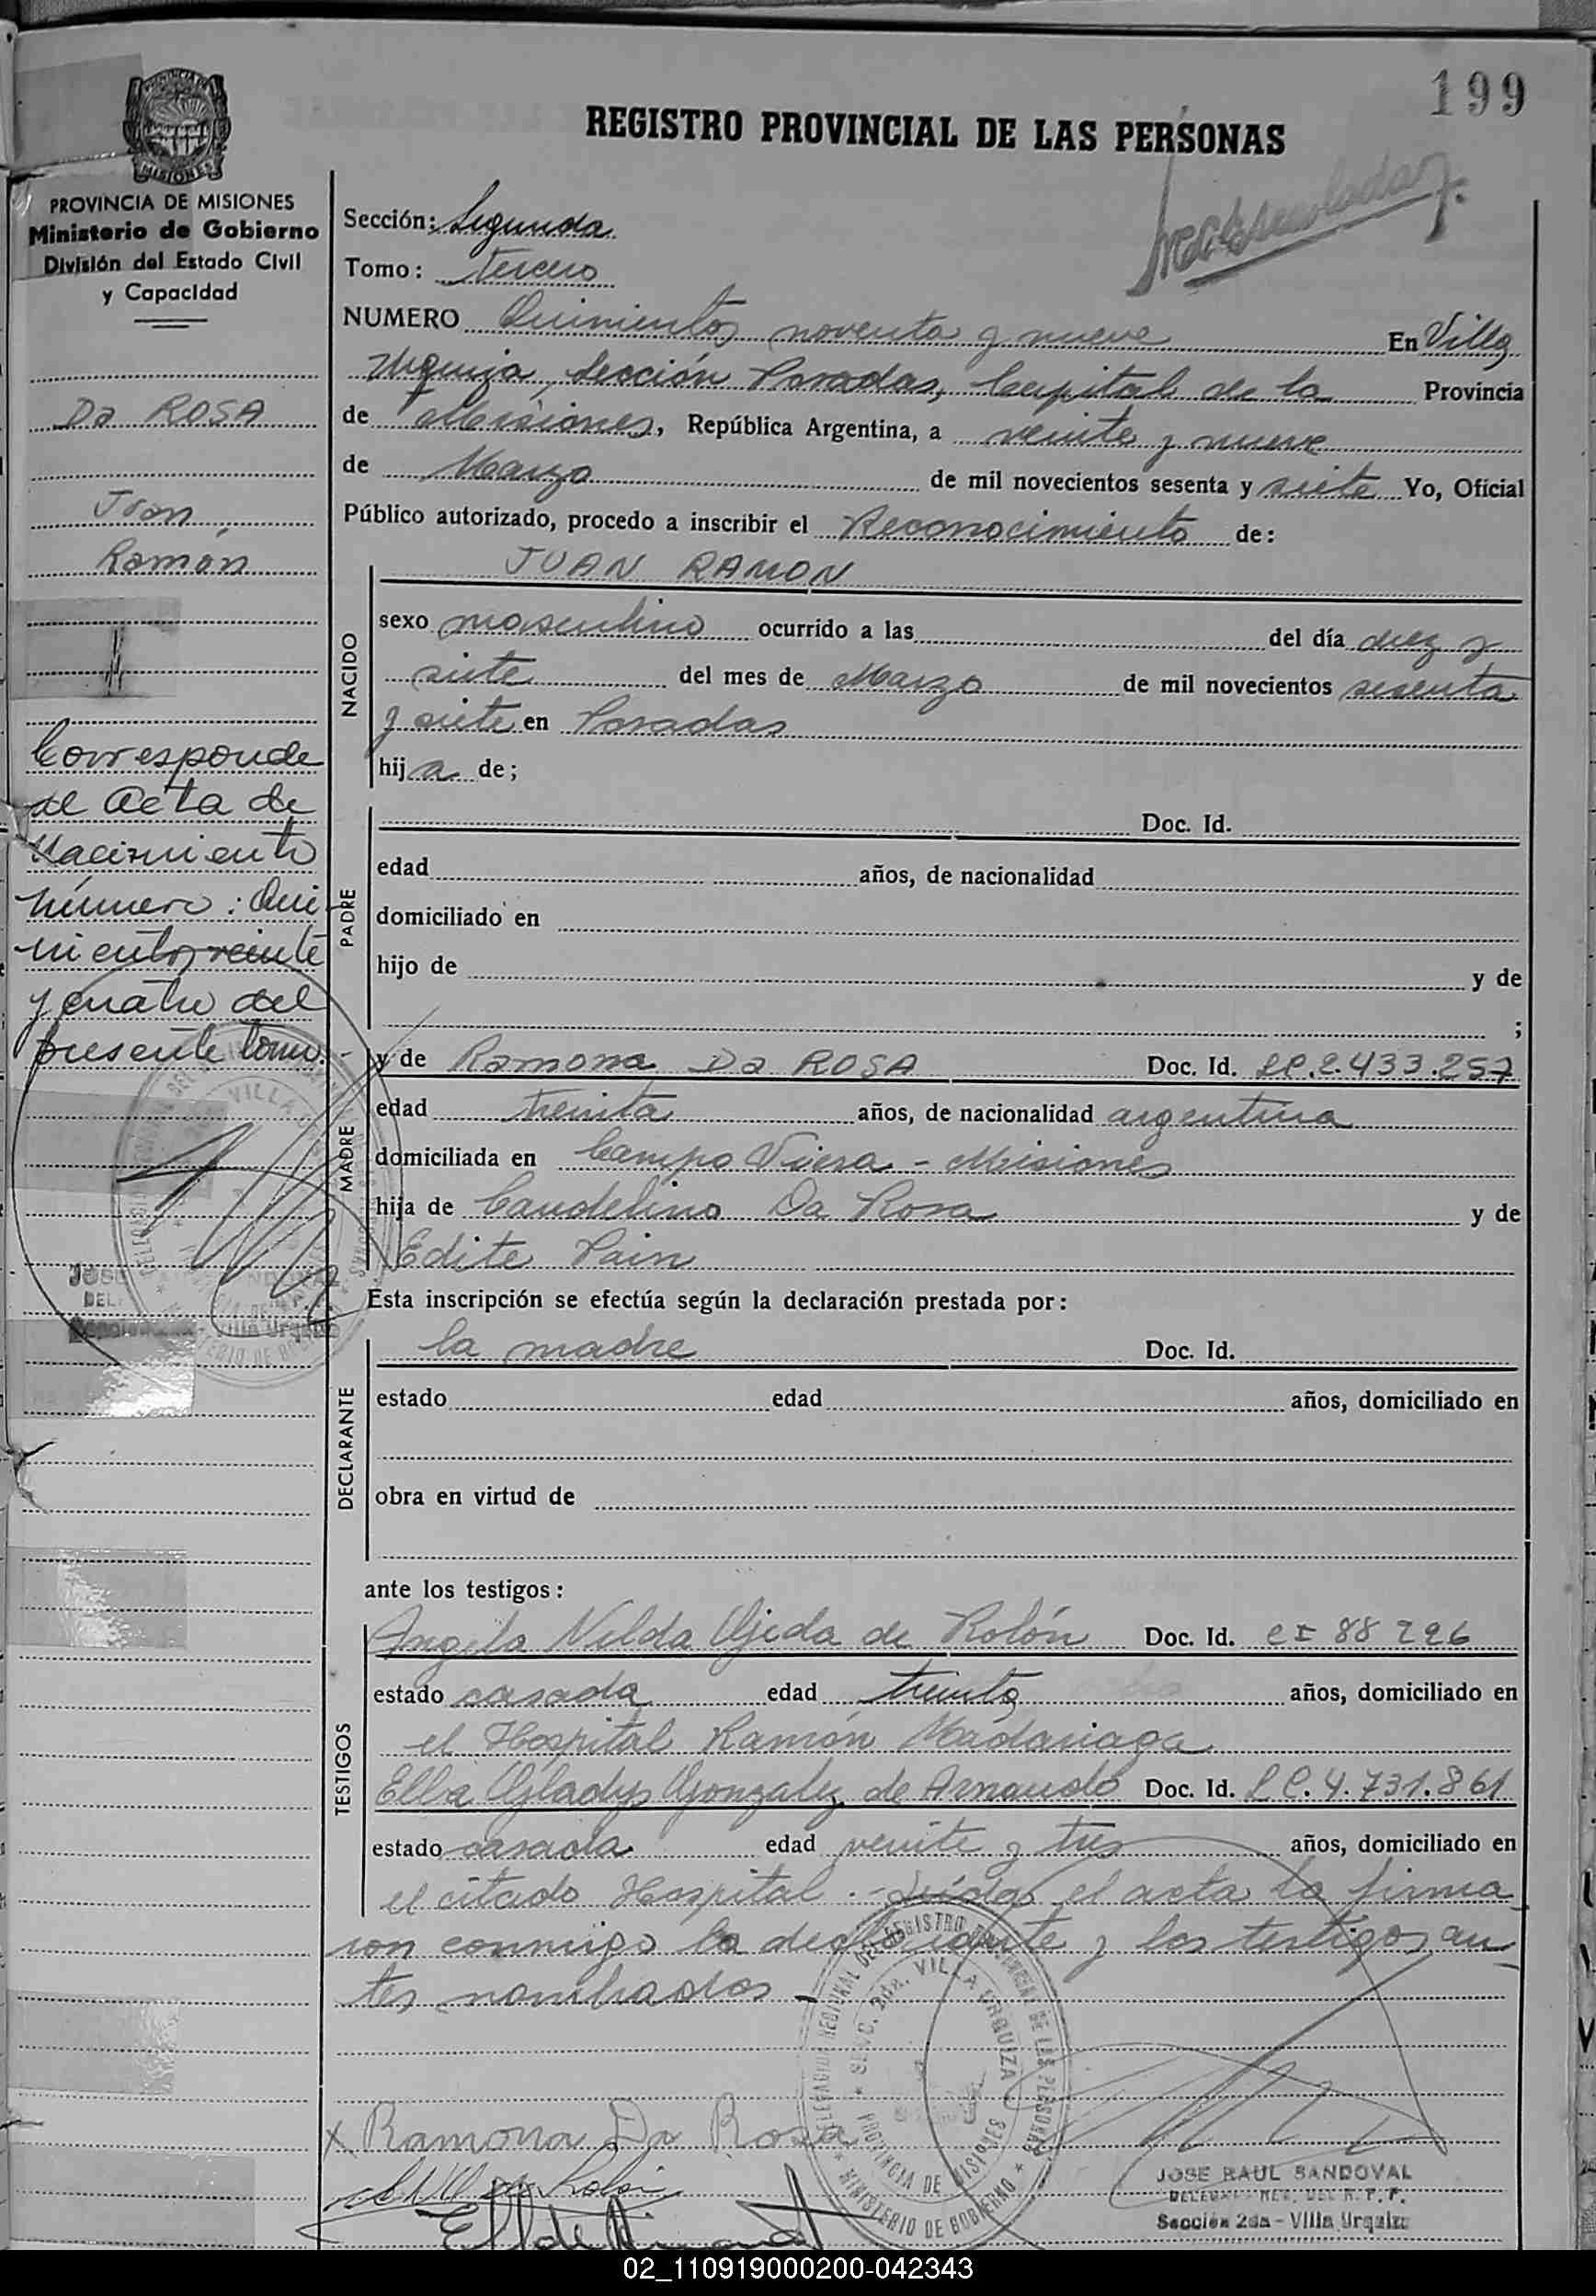 199
REGISTRO PROVINCIAL DE LAS PERSONAS
PROVINCIA DE MISIONES
Ministerio de Gobierno
División del Estado Civil
y Capacidad
Da ROSA
Juan
Ramón
Corresponde
al Acta de
Nacimiento
número: Qui-
nientos veinte
y cuatro del
presente tomo.
Sección: Segunda
Tomo: Tercero
NUMERO Quinientos noventa y nueve En Villa
Urquiza, Sección Posadas, Capital de la Provincia
de Misiones, República Argentina, a veinte y nueve
de Marzo de mil novecientos sesenta y siete Yo, Oficial
Público autorizado, procedo a inscribir el Reconocimiento de:
NACIDO
JUAN RAMON
sexo masculino ocurrido a las del día diez y
siete del mes de Marzo de mil novecientos sesenta
y siete en Posadas
hij a de;
PADRE
Doc. Id.
edad años, de nacionalidad
domiciliado en
hijo de y de
;
MADRE
y de Ramona Da ROSA Doc. Id. LC.2.433.257
edad treinta años, de nacionalidad argentina
domiciliada en Campo Viera - Misiones
hija de Candelino Da Rosa y de
Edite Pain
Esta inscripción se efectúa según la declaración prestada por:
DECLARANTE
la madre Doc. Id.
estado edad años, domiciliado en
obra en virtud de
ante los testigos:
TESTIGOS
Angela Nilda Ojeda de Rolón Doc. Id. CI 88296
estado casada edad treinta años, domiciliado en
el Hospital Ramón Madariaga
Elba Gladys Gonzalez de Arnaudo Doc. Id. LC.4.731.861
estado casada edad veinte y tres años, domiciliado en
el citado Hospital. - Leída el acta la firma
ron conmigo la declarante y los testigos an
tes nombrados
DELEGACION REGIONAL DEL REGISTRO PROVINCIAL DE LAS PERSONAS
SECC. 2da. VILLA URQUIZA
PROVINCIA DE MISIONES
MINISTERIO DE GOBIERNO
x Ramona Da Rosa
JOSE RAUL SANDOVAL
Sección 2da - Villa Urquiza
02_110919000200-042343